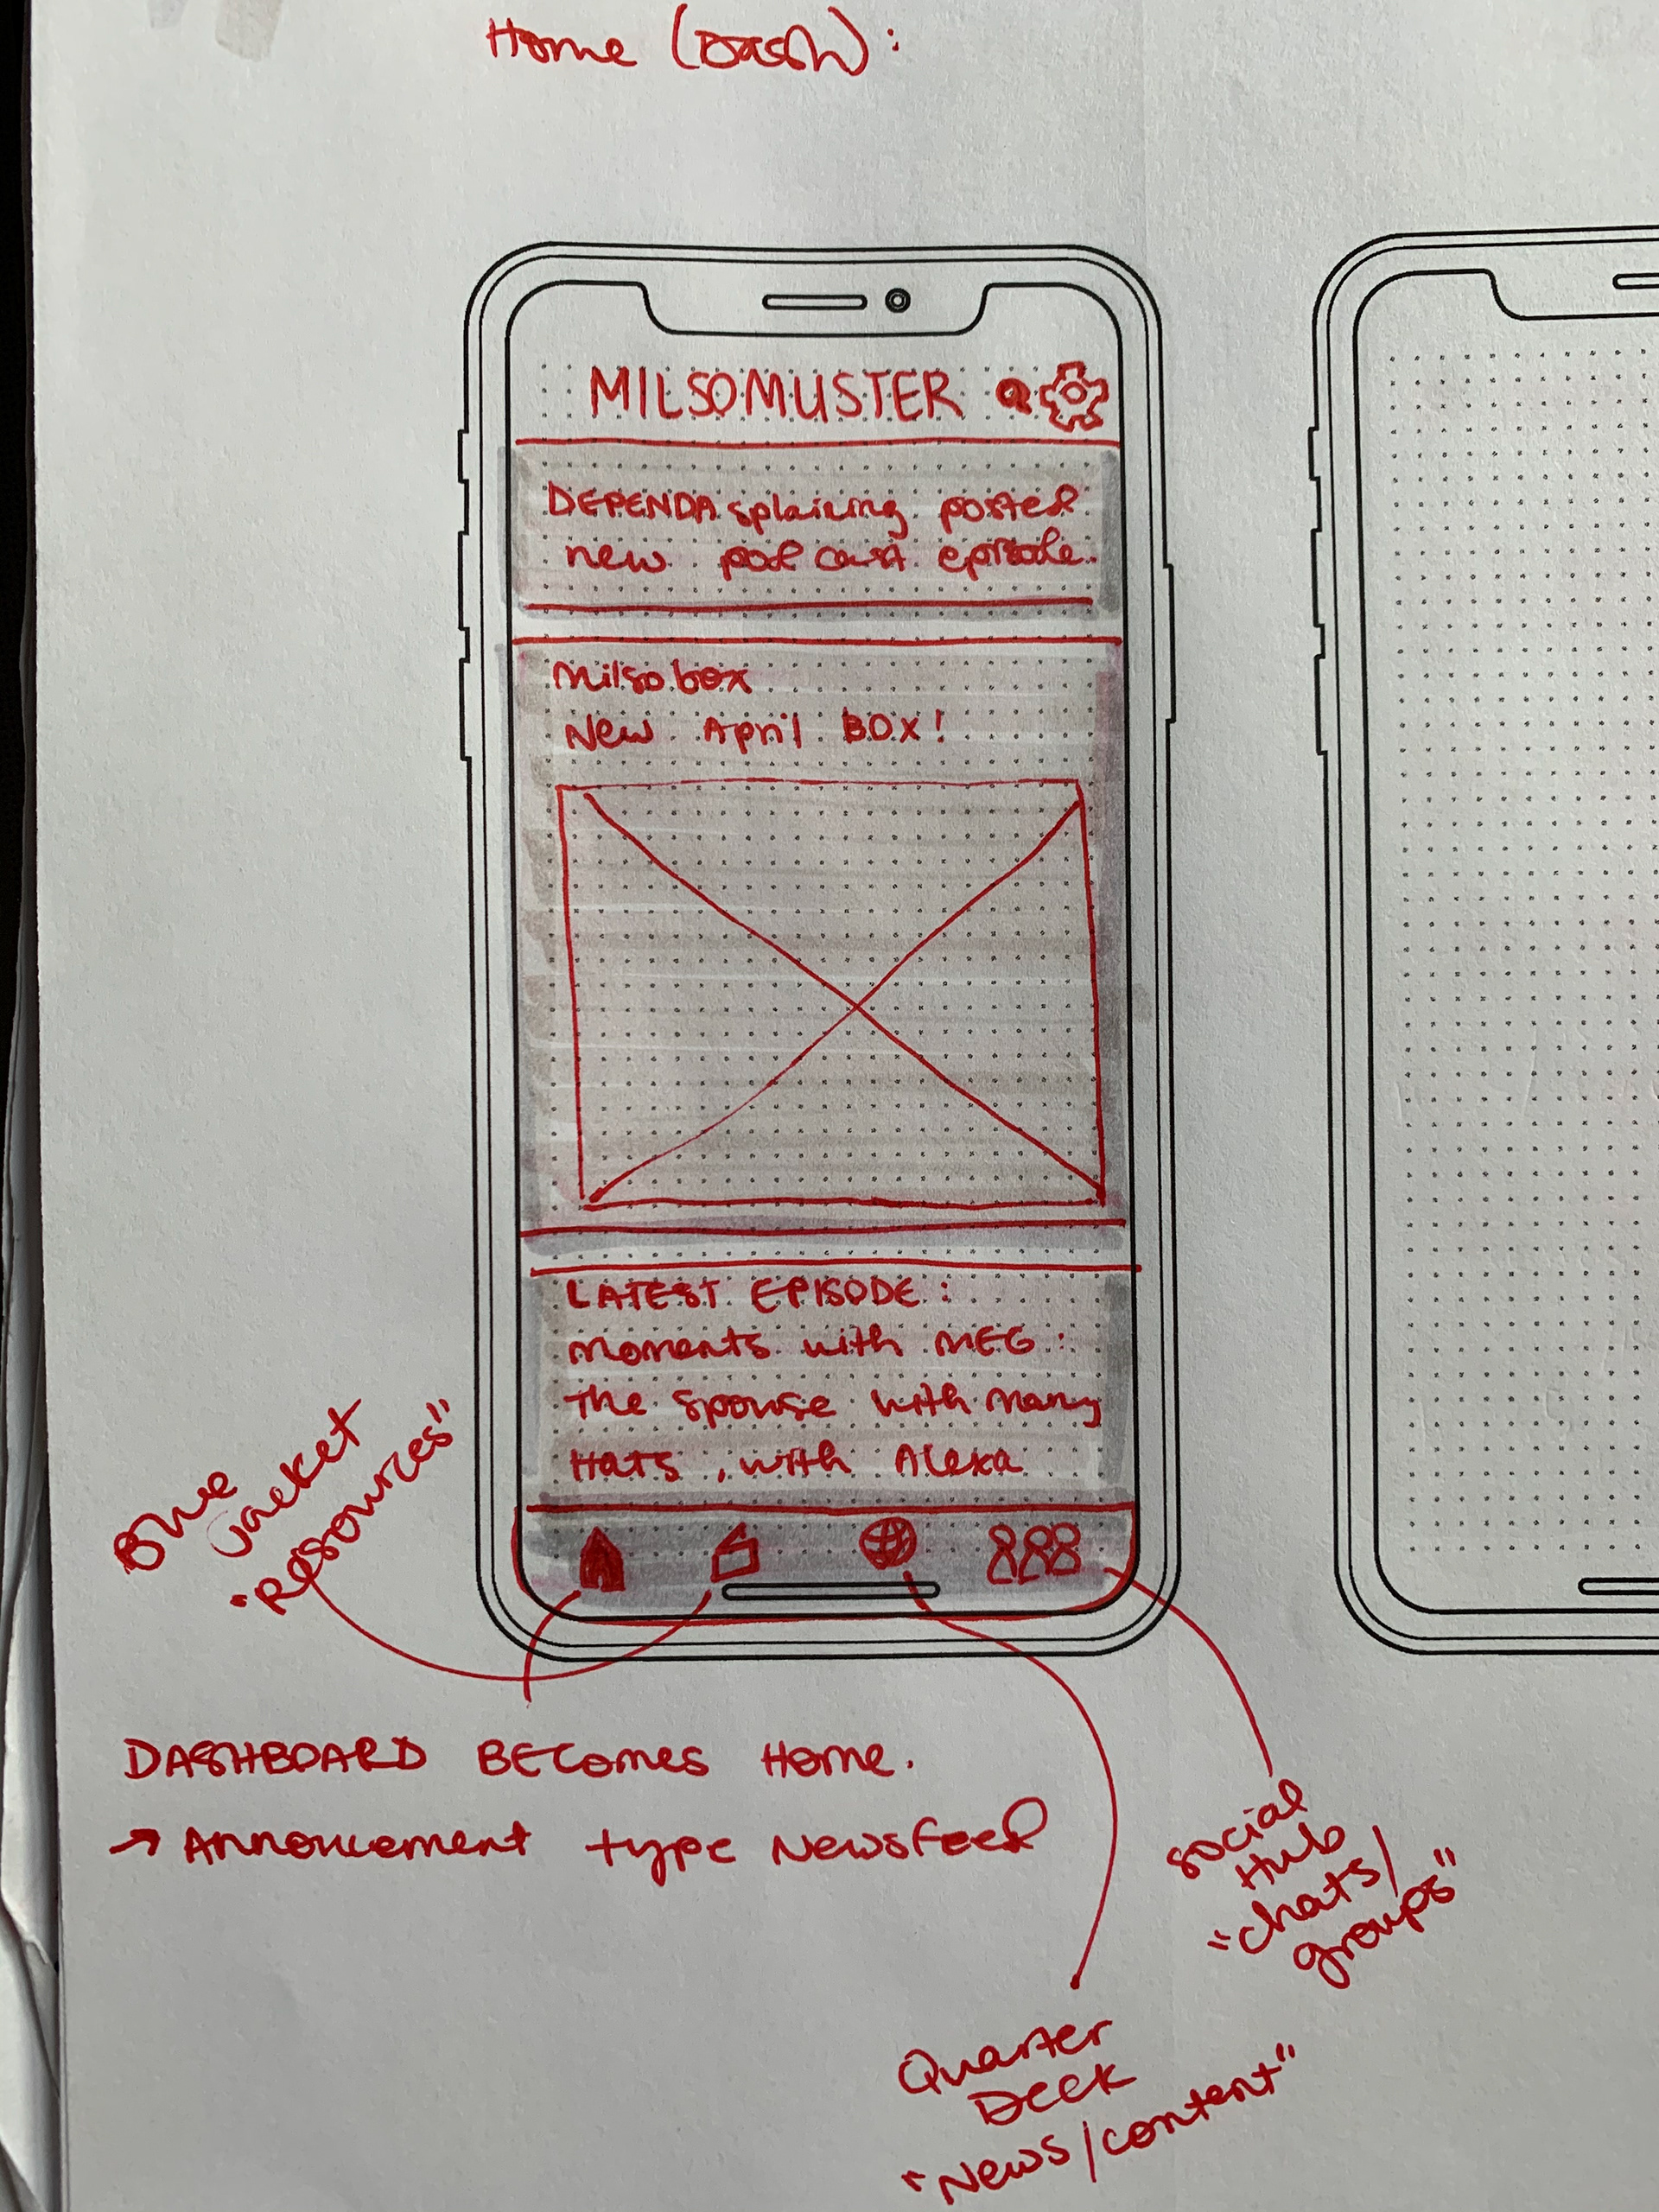 Home (DASH):
MILSOMUSTER
DEPENDAsplaining posted
new podcast episode.
Milsobox
New April BOX!
LATEST EPISODE:
Moments with MEG:
The Spouse with Many
Hats, with Alexa
Blue
Jacket
"Resources"
DASHBOARD BECOMES Home.
→ Annoucement type Newsfeed
Social
Hub
"chats/
groups"
Quarter
Deck
"News/content"